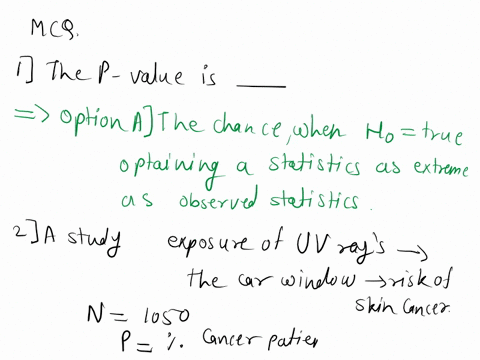 MCQ.
1] The P-value is ____
=> Option A] The chance, when H₀ = true
optaining a statistics as extreme
as observed statistics.
2] A study exposure of UV ray's →
the car window → risk of
skin cancer.
N = 1050
P = %. Cancer patien